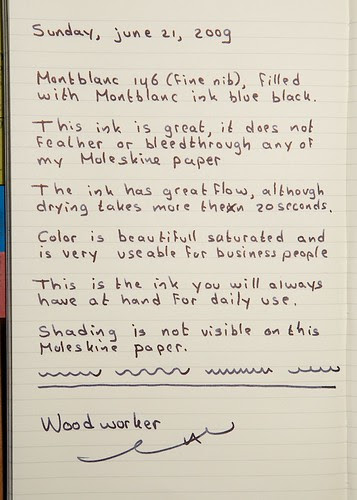 Sunday, june 21, 2009
Montblanc 146 (Fine nib), filled
with Montblanc ink blue black.
This ink is great, it does not
Feather or bleedthrough any of
my Moleskine paper
The ink has great flow, although
drying takes more then 20 seconds.
Color is beautifull saturated and
is very useable for business people
This is the ink you will always
have at hand for daily use.
Shading is not visible on this
Moleskine paper.
Woodworker